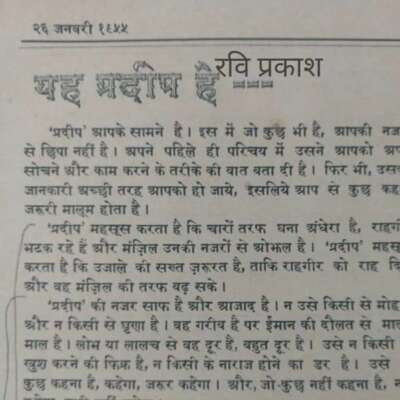 २६ जनवरी १९५५
रवि प्रकाश
यह प्रदीप है ---
'प्रदीप' आपके सामने है। इस में जो कुछ भी है, आपकी नज
से छिपा नहीं है। अपने पहिले ही परिचय में उसने आपको अप
सोचने और काम करने के तरीके की बात बता दी है। फिर भी, उसक
जानकारी अच्छी तरह आपको हो जाये, इसलिये आप से कुछ कह
जरूरी मालूम होता है।
'प्रदीप' महसूस करता है कि चारों तरफ घना अंधेरा है, राहगी
भटक रहे हैं और मंज़िल उनकी नजरों से ओझल है। 'प्रदीप' महसू
करता है कि उजाले की सख्त ज़रूरत है, ताकि राहगीर को राह दि
और वह मंज़िल की तरफ बढ़ सके।
'प्रदीप' की नजर साफ है और आजाद है। न उसे किसी से मोह
और न किसी से घृणा है। वह गरीब है पर ईमान की दौलत से माल
माल है। लोभ या लालच से वह दूर है, बहुत दूर है। उसे न किसी
खुश करने की फिक्र है, न किसी के नाराज होने का डर है। उसे
कुछ कहना है, कहेगा, जरूर कहेगा। और, जो कुछ नहीं कहना है, न